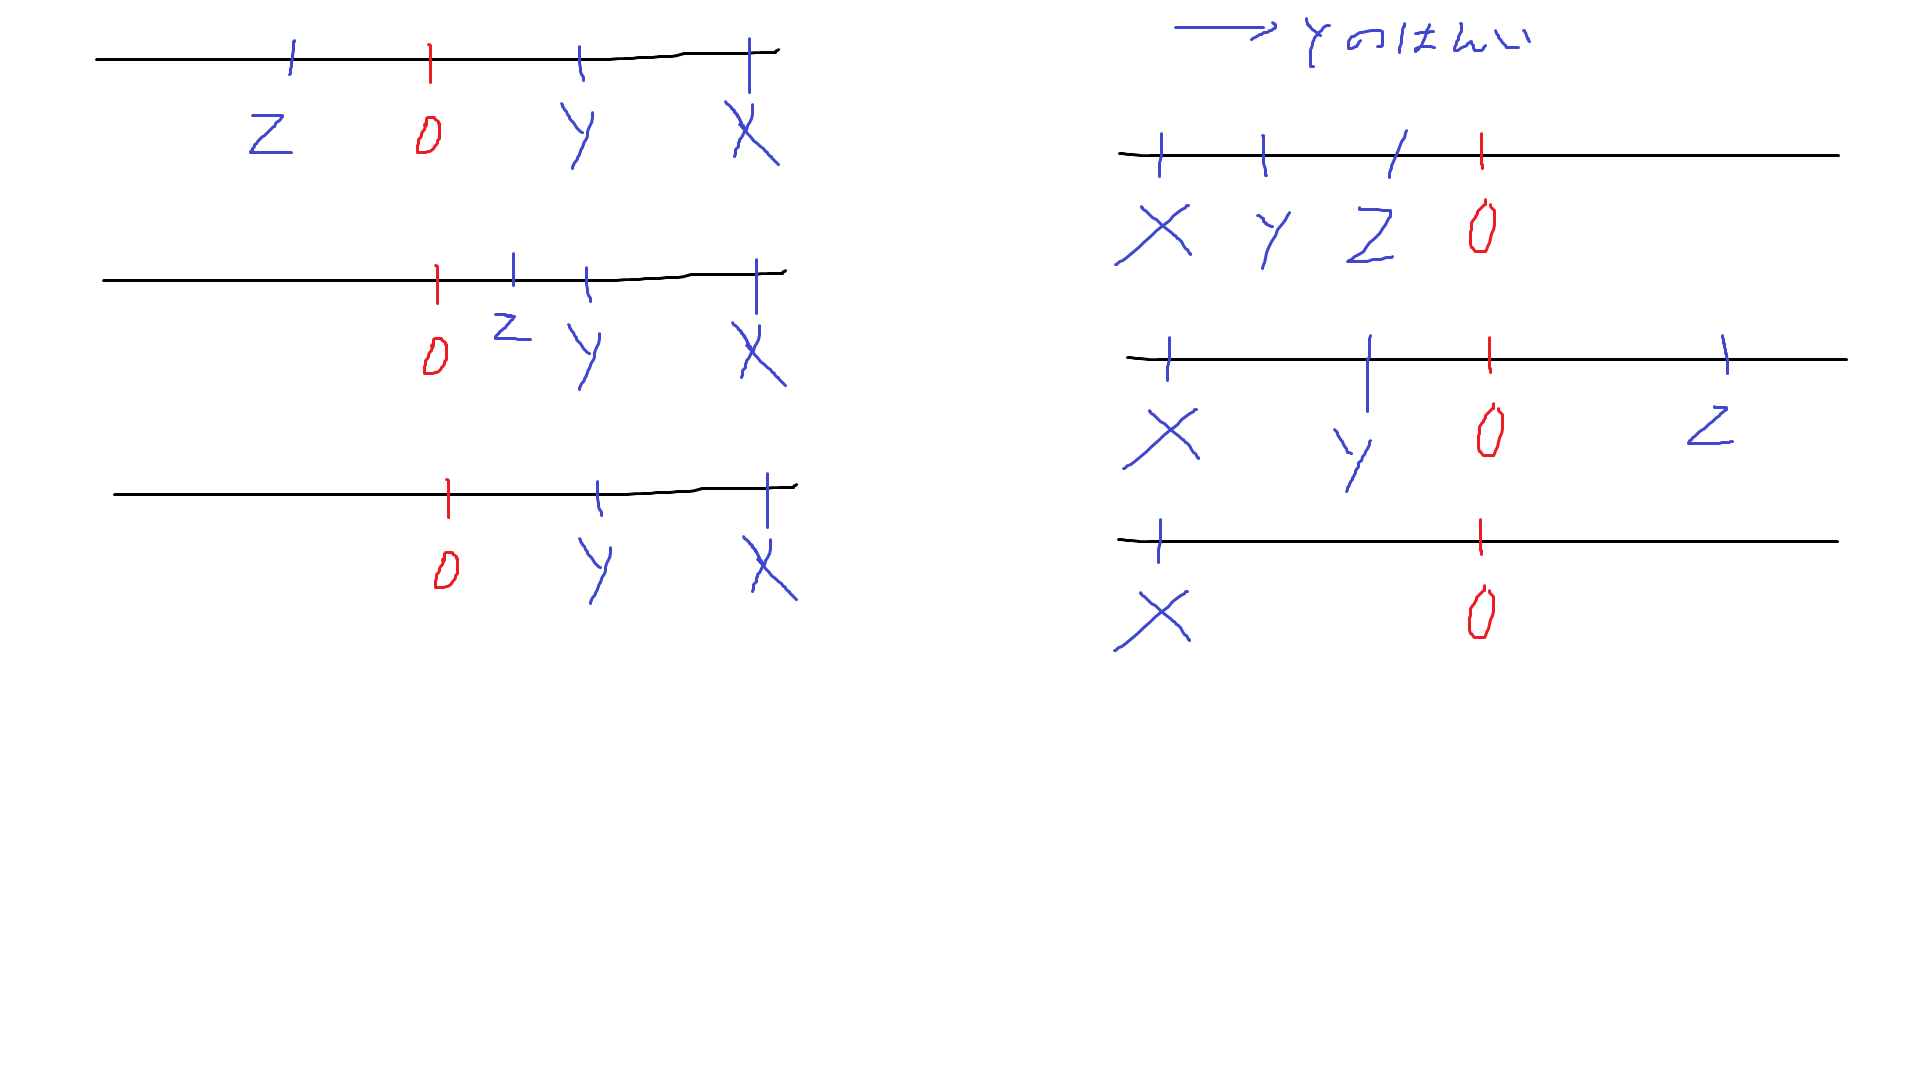 Z 0 Y X
0 Z Y X
0 Y X
→ Yのはんい
X Y Z 0
X Y 0 Z
X 0